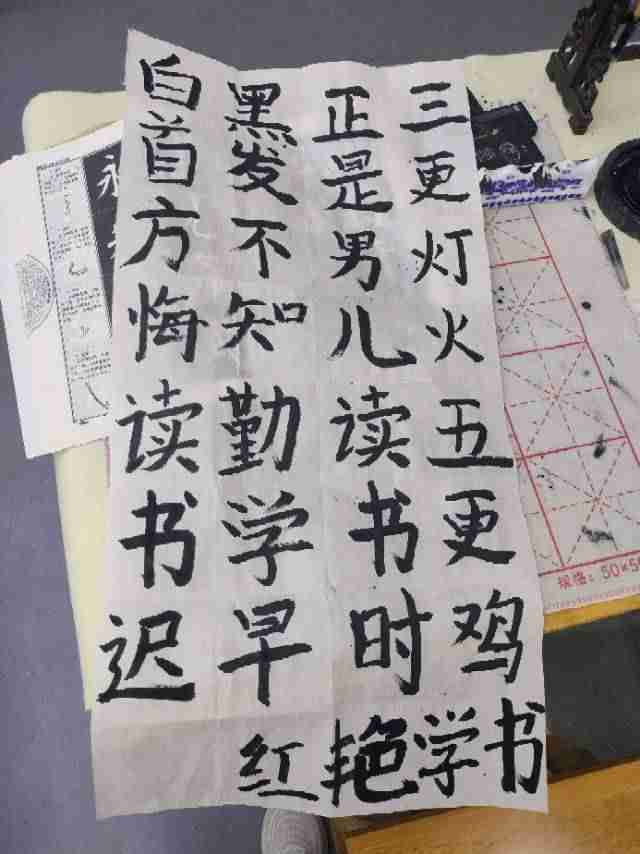 三更灯火五更鸡
正是男儿读书时
黑发不知勤学早
白首方悔读书迟
红艳学书
规格:50×5